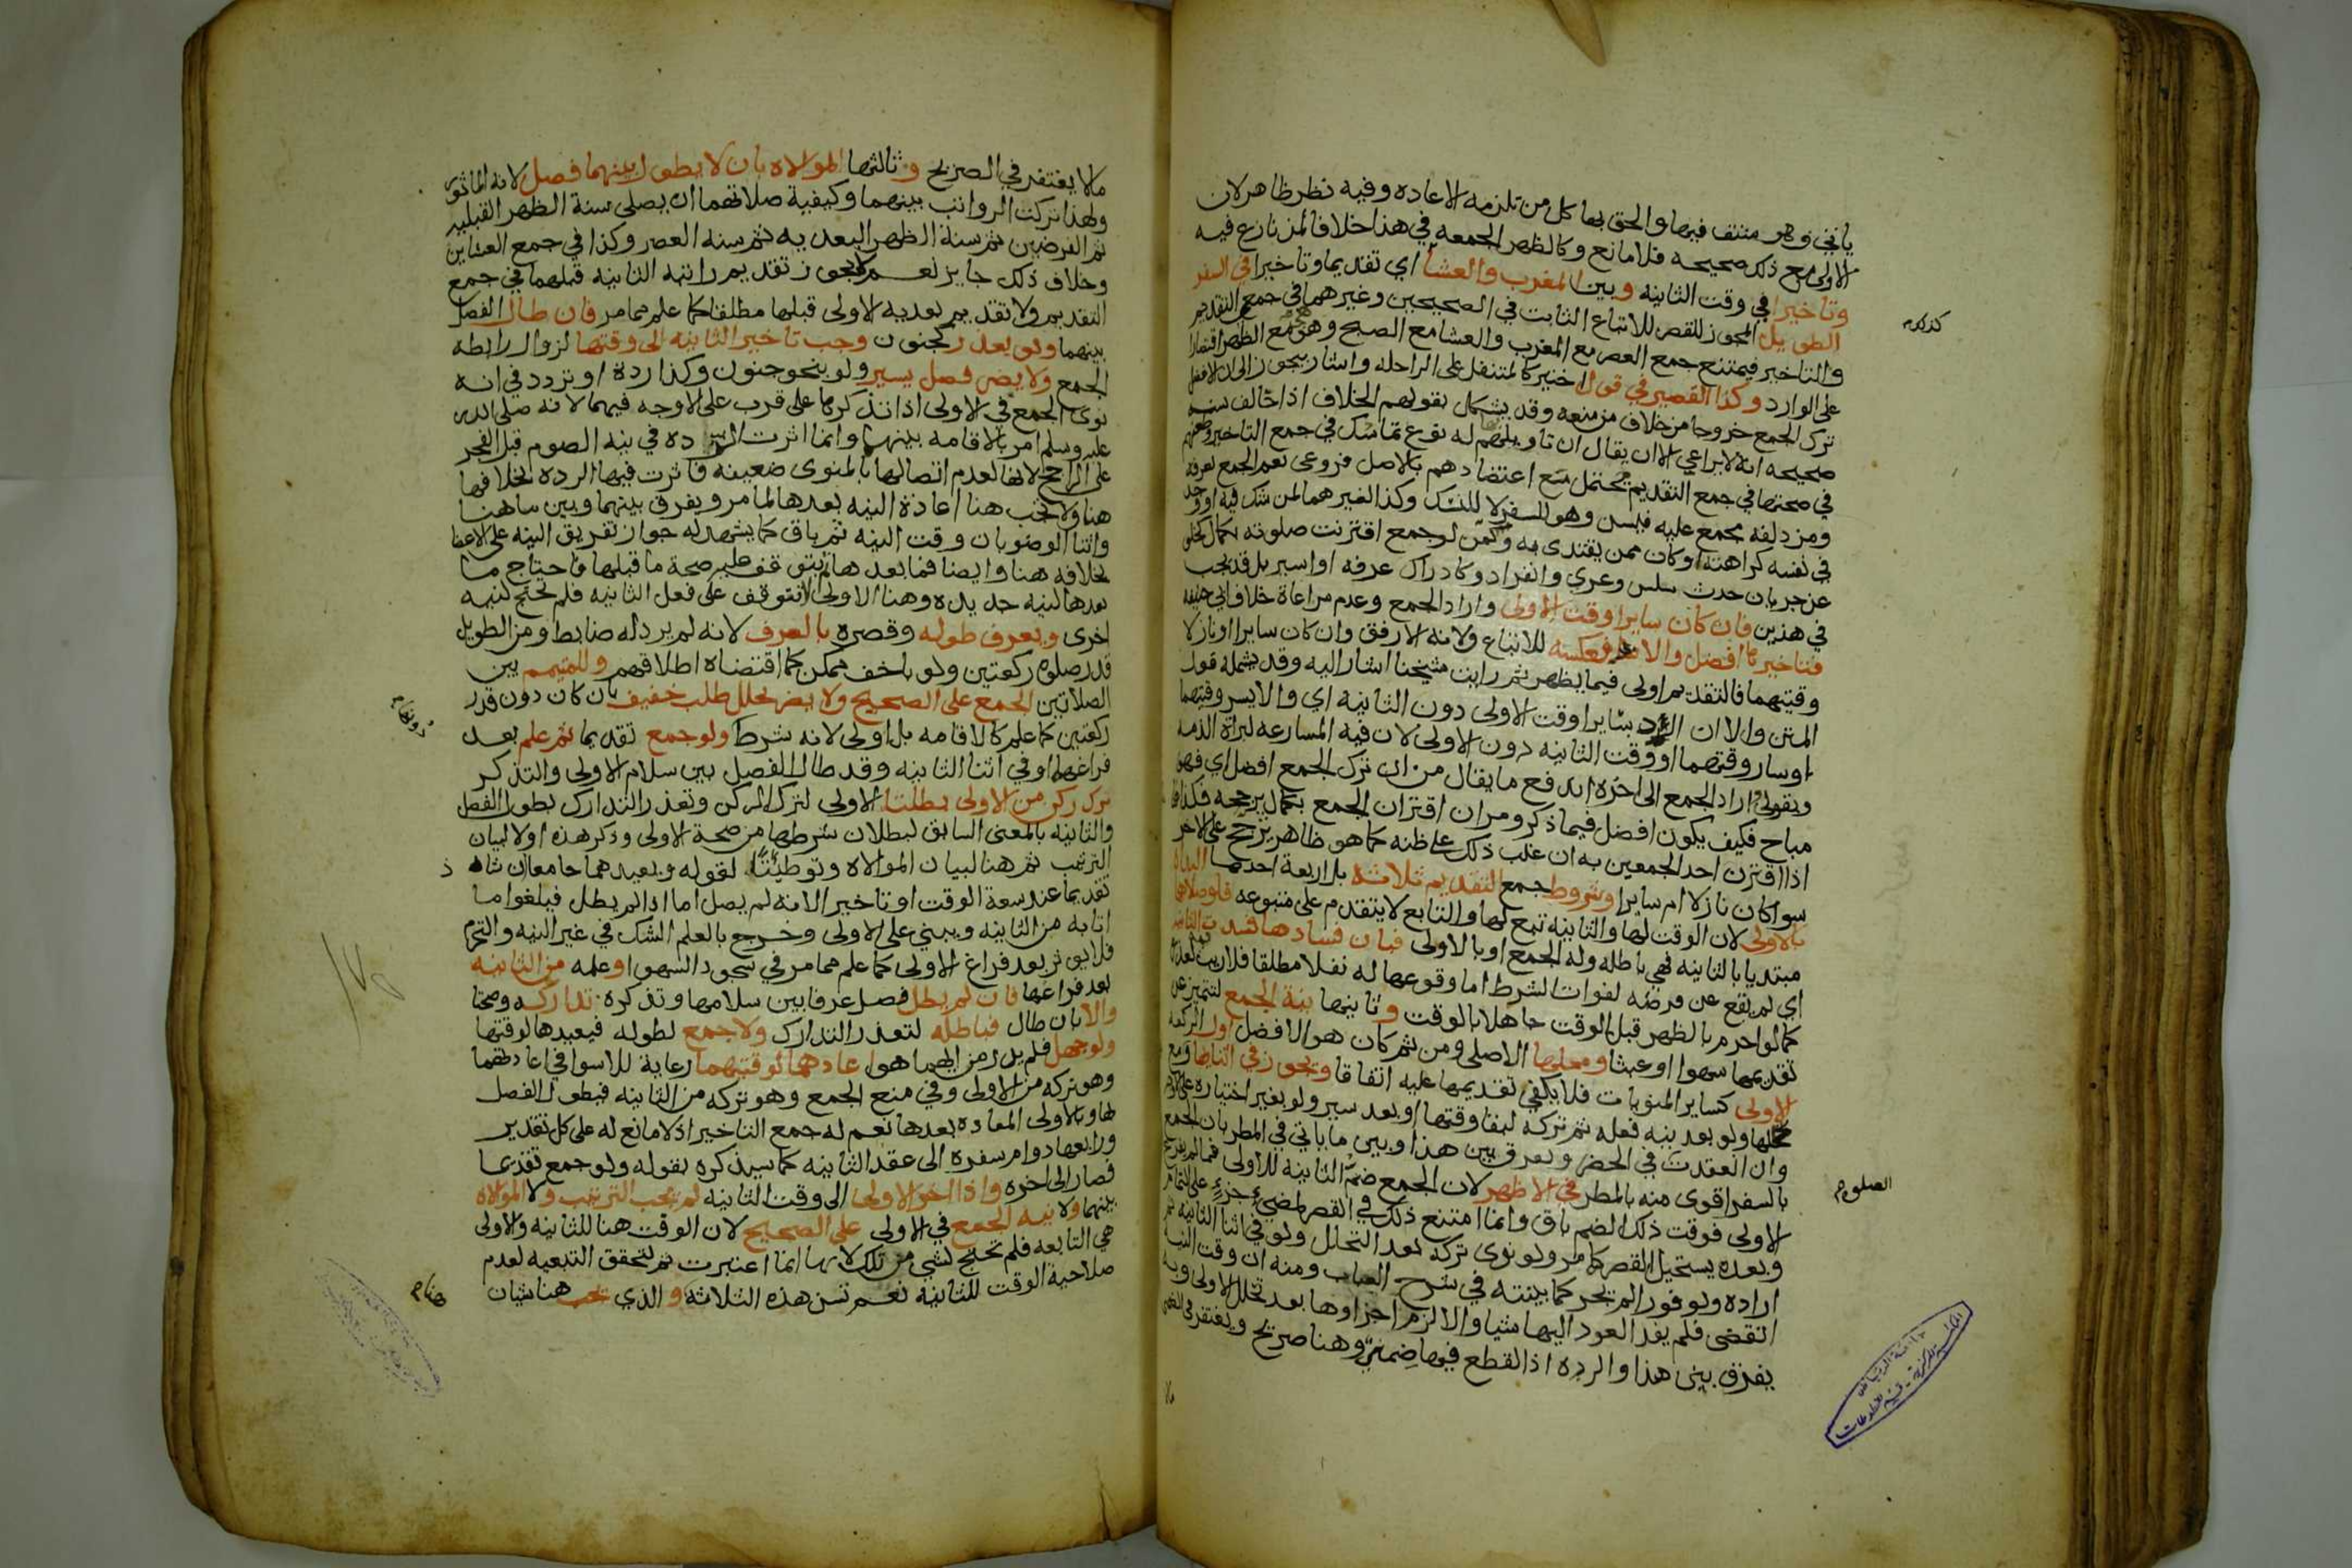 ياتي وهو منتف فيها والحق بها كل من تلزمه الاعاده وفيه نظر ظاهر لان
الاولى مع ذلك صحيحه فلا مانع وكالظهر الجمعه في هذا خلافا لمن نازع فيه
وتاخيرا في وقت الثانيه وبين المغرب والعشا اي تقديما وتاخيرا في السفر
الطويل المجوز للقصر للاتباع الثابت في الصحيحين وغيرهما في جمع التقديم
والتاخير فيمتنع جمع العصر مع المغرب والعشا مع الصبح وهو مع الظهر اقتصارا
على الوارد وكذا القصير في قول اختير كالتنفل على الراحله واشار بيجوز الى ان الافضل
ترك الجمع خروجا من خلاف من منعه وقد يشكل بقولهم الخلاف اذا خالف سنه
صحيحه انه لا يراعي الا ان يقال ان تاويلهم له نوع تماسك في جمع التاخير وطعنهم
في صحتها في جمع التقديم محتمل مع اعتضادهم بالاصل فروعي نعم الجمع بعرفه
ومزدلفه مجمع عليه فيسن وهو للسفر لا للنسك وكذا لغيرهما لمن شك فيه او وجد
في نفسه كراهته او كان ممن يقتدى به وكمن لو جمع اقترنت صلوته بكمال كخلو
عن جريان حدث سلس وعري وانفراد وكادراك عرفه او اسير بل قد يجب
في هذين فان كان سايرا وقت الاولى واراد الجمع وعدم مراعاة خلاف ابي حنيفه
فتاخيرها افضل والا فعكسه للاتباع ولانه الارفق وان كان سايرا او نازلا
وقتيهما فالتقديم اولى فيما يظهر ثم رايت شيخنا اشار اليه وقد يشمله قول
المتن والا ان اريد سايرا وقت الاولى دون الثانيه اي والا يسر وقتهما
او سار وقتهما او وقت الثانيه دون الاولى لان فيه المسارعه لبراة الذمه
وبقولي اراد الجمع الى اخره اندفع ما يقال من ان ترك الجمع افضل اي فهو
مباح فكيف يكون افضل فيما ذكر ومر ان اقتران الجمع بكمال يرجحه فكذا
اذا اقترن احد الجمعين به ان غلب ذلك على ظنه كما هو ظاهر يترجح على الاخر
سوا كان نازلا ام سايرا وشروط جمع التقديم ثلاثه بل اربعة احدها البداه
بالاولى لان الوقت لها والثانيه تبع لها والتابع لا يتقدم على متبوعه فلو صلاهما
مبتديا بالثانيه فهي باطله وله الجمع او بالاولى فبان فسادها فسدت الثانيه
اي لم يقع عن فرضه لفوات الشرط اما وقوعها له نفلا مطلقا فلا ريب لعذره
كما لو احرم بالظهر قبل الوقت جاهلا بالوقت وثانيها نية الجمع لتتميز عن
تقديمها سهوا او عبثا ومحلها الاصلي ومن ثم كان هو الافضل اول
الاولى كساير المنويات فلا يكفي تقديمها عليه اتفاقا ويجوز في اثنايها ومع
تحللها ولو بعد نيه فعله ثم تركه لبقا وقتها او بعد سير ولو بغير اختياره
وان انعقدت في الحضر ويفرق بين هذا وبين ما ياتي في المطر بان الجمع
بالسفر اقوى منه بالمطر في الاظهر لان الجمع ضم الثانية للاولى فما لم يفرغ
الاولى فوقت ذلك الضم باق وانما امتنع ذلك في القصر لمضي جزء على التمام
وبعده يستحيل القصر كما مر ولو نوى تركه بعد التحلل ولو في اثنا الثانيه ثم
اراده ولو فورا لم يجز كما بينته في شرح العباب ومنه ان وقت النيه
انقضى فلم يفد العود اليها شيا والا لزم اجزاوها بعد تحلل الاولى وبه
يفرق بين هذا والرده اذ القطع فيها ضمني وهنا صريح ويغتفر في الضمني
الصلوه
ما لا يغتفر في الصريح وثالثها الموالاه بان لا يطول بينهما فصل لانه الماثور
ولهذا تركت الرواتب بينهما وكيفية صلاتهما ان يصلي سنة الظهر القبليه
ثم الفرضين ثم سنة الظهر البعديه ثم سنه العصر وكذا في جمع العشاين
وخلاف ذلك جايز نعم لا يجوز تقديم راتبه الثانيه قبلهما في جمع
التقديم ولا تقديم بعديه الاولى قبلها مطلقا كما علم مما مر فان طال الفصل
بينهما ولو بعذر كجنون وجب تاخير الثانيه الى وقتها لزوال رابطه
الجمع ولا يضر فصل يسير ولو بنحو جنون وكذا ردة او تردد في انه
نوى الجمع في الاولى اذا تذكرها على قرب على الاوجه فيهما لانه صلى الله
عليه وسلم امر بالاقامه بينهما وانما اثرت الرده في نيه الصوم قبل الفجر
على الراجح لانها لعدم اتصالها بالمنوى ضعيفه فاثرت فيها الرده بخلافها
هنا ولا تجب هنا اعادة النيه بعدها لما مر ويفرق بينهما وبين ما هنا
واثنا الوضو بان وقت النيه ثم باق كما يشهد له جواز تفريق النيه على الاعضا
بخلافه هنا وايضا فما بعدها ثم يتوقف عليه صحة ما قبلها فاحتاج ما
بعدها لنيه جديده وهنا الاولى لا تتوقف على فعل الثانيه فلم تحتج لنيه
اخرى ويعرف طوله وقصره بالعرف لانه لم يرد له ضابط ومن الطويل
قدر صلوه ركعتين ولو باخف ممكن كما اقتضاه اطلاقهم وللمتيمم بين
الصلاتين الجمع على الصحيح ولا يضر تخلل طلب خفيف بان كان دون قدر
ركعتين كما علم كالاقامه بل اولى لانه شرط ولو جمع تقديما ثم علم بعد
فراغهما او في اثنا الثانيه وقد طال الفصل بين سلام الاولى والتذكر
ترك ركن من الاولى بطلتا الاولى لترك الركن وتعذر التدارك بطول الفصل
والثانيه بالمعنى السابق لبطلان شرطها من صحة الاولى وذكر هذه اولا لبيان
الترتيب ثم هنا لبيان الموالاه وتوطيئا لقوله ويعيدهما جامعا ان شا
تقديما عند سعة الوقت او تاخيرا لانه لم يصل اما اذا لم يطل فيلغوا ما
اتابه من الثانيه ويبني على الاولى وخرج بالعلم الشك في غير النيه والتحرم
فلا يوثر بعد فراغ الاولى كما علم مما مر في سجود السهو او علمه من الثانيه
بعد فراغها فان لم يطل فصل عرفا بين سلامها وتذكره تداركه وصحتا
والا بان طال فباطله لتعذر التدارك ولا جمع لطوله فيعيدها لوقتها
ولو جهل فلم يدر من ايهما هو اعادهما لوقتيهما رعاية للاسوا في اعادتهما
وهو تركه من الاولى وفي منع الجمع وهو تركه من الثانيه فيطول الفصل
بها وبالاولى المعاده بعدها نعم له جمع التاخير اذ لا مانع له على كل تقدير
ورابعها دوام سفره الى عقد الثانيه كما سيذكره بقوله ولو جمع تقديما
فصار الى اخره واذا اخر الاولى الى وقت الثانيه لم يجب الترتيب ولا الموالاه
بينهما ولا نيه الجمع في الاولى على الصحيح لان الوقت هنا للثانيه والاولى
هي التابعه فلم تحتج لشي من تلك لانها انما اعتبرت ثم لتحقق التبعيه لعدم
صلاحية الوقت للثانيه نعم تسن هذه الثلاثه والذي يجب هنا شيان